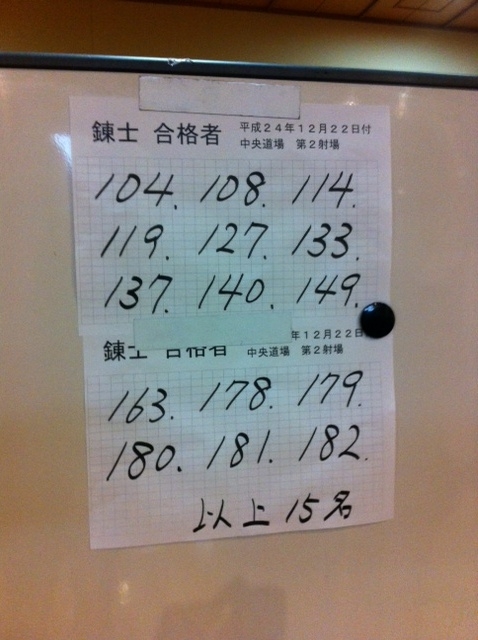 錬士 合格者 平成24年12月22日付
中央道場 第2射場
104. 108. 114.
119. 127. 133.
137. 140. 149.
錬士 合格者 年12月22日
中央道場 第2射場
163. 178. 179.
180. 181. 182.
以上 15名